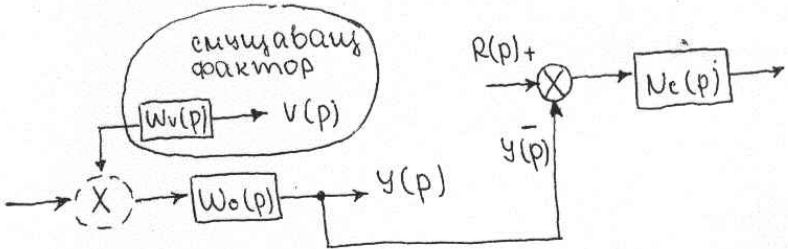 смущаващ
фактор
Wv(p)
V(p)
R(p)+
Nc(p)
y(p)
-
X
Wo(p)
y(p)